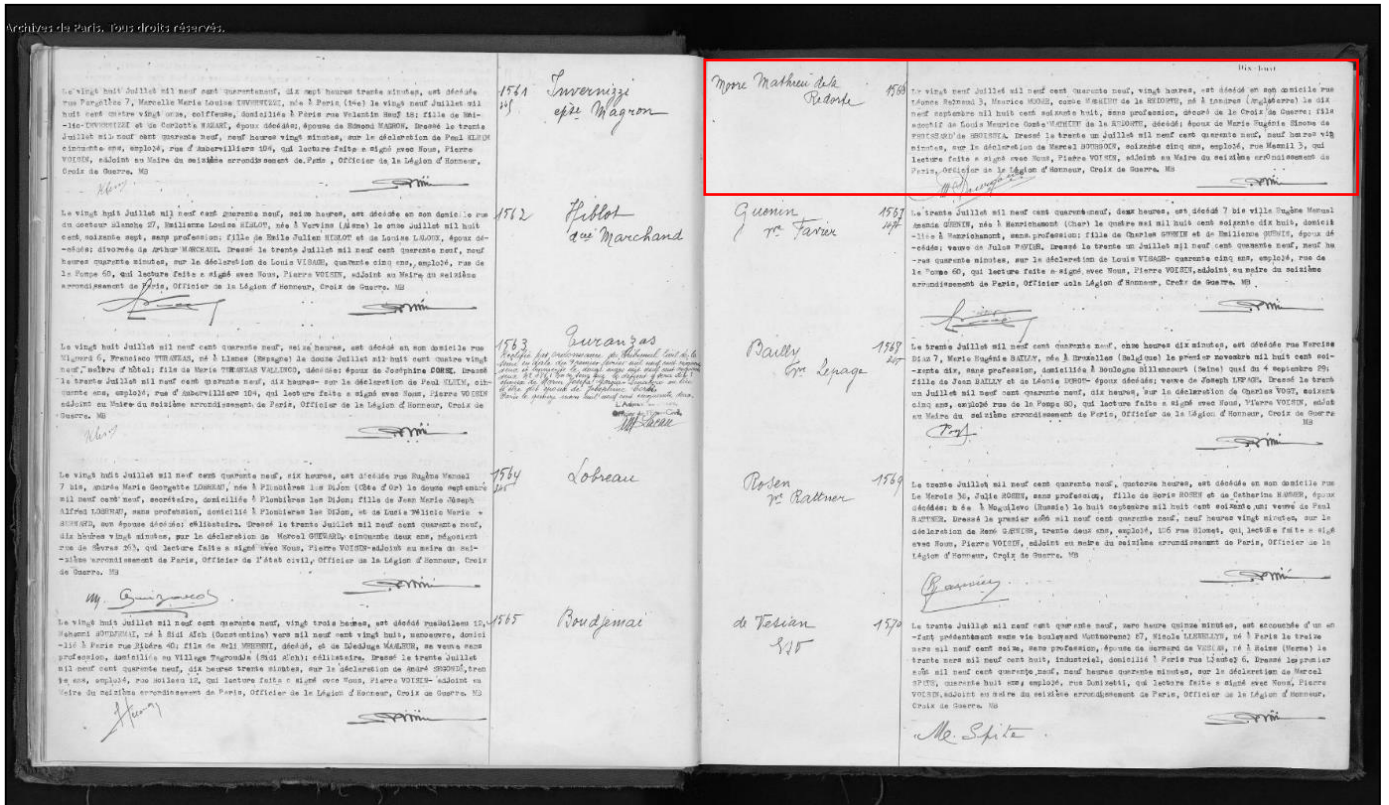 Archives de Paris. Tous droits réservés.
Le vingt huit Juillet mil neuf cent quarante neuf, dix sept heures trente minutes, est décédée
rue Pergolèse 7, Marcelle Marie Louise INVERNIZZI, née à Paris le vingt neuf Juillet mil
huit cent quatre vingt onze, coiffeuse, domiciliée à Paris rue Valentin Hauy 18; fille de
INVERNIZZI et de Carlotta époux décédés; épouse de Edmond MAGRON. Dressé le trente
Juillet mil neuf cent quarante neuf, neuf heures vingt minutes, sur la déclaration de Paul KLEIN
cinquante ans, employé, rue d'Aubervilliers 104, qui lecture faite a signé avec Nous, Pierre
VOISIN, adjoint au Maire du seizième arrondissement de Paris, Officier de la Légion d'Honneur,
Croix de Guerre. MB
1561
Invernizzi
épse Magron
Le vingt huit Juillet mil neuf cent quarante neuf, seize heures, est décédée en son domicile rue
du Docteur Blanche 27, Emilienne Louise HIBLOT, née à Vervins (Aisne) le onze Juillet mil huit
cent soixante sept, sans profession; fille de Emile Julien HIBLOT et de Louise LALOUX, époux dé-
-cédés; divorcée de Arthur MARCHAND. Dressé le trente Juillet mil neuf cent quarante neuf, neuf
heures quarante minutes, sur la déclaration de Louis VISAGE, quarante cinq ans, employé, rue de
la Pompe 60, qui lecture faite a signé avec Nous, Pierre VOISIN, adjoint au Maire du seizième
arrondissement de Paris, Officier de la Légion d'Honneur, Croix de Guerre. MB
1562
Hiblot
dcée Marchand
Le vingt huit Juillet mil neuf cent quarante neuf, seize heures, est décédé en son domicile rue
Francisco né à (Espagne) le douze Juillet mil huit cent quatre vingt
neuf, maître d'hôtel; fils de Marie VALLINCO, décédés; époux de Joséphine Dressé
le trente Juillet mil neuf cent quarante neuf, dix heures sur la déclaration de Paul KLEIN, cin-
quante ans, employé, rue d'Aubervilliers 104, qui lecture faite a signé avec Nous, Pierre VOISIN
adjoint au Maire du seizième arrondissement de Paris, Officier de la Légion d'Honneur, Croix de
Guerre. MB
1563
Le vingt huit Juillet mil neuf cent quarante neuf, six heures, est décédée rue Eugène Manuel
7 bis, Andrée Marie Georgette LOBREAU, née à Plombières les Dijon (Côte d'Or) le douze septembre
mil neuf cent neuf, secrétaire, domiciliée à Plombières les Dijon; fille de Jean Marie Joseph
Alfred LOBREAU, sans profession, domicilié à Plombières les Dijon, et de Lucie Félicie Marie
son épouse décédée; célibataire. Dressé le trente Juillet mil neuf cent quarante neuf,
dix heures vingt minutes, sur la déclaration de Marcel cinquante deux ans, négociant
rue de Sèvres 163, qui lecture faite a signé avec Nous, Pierre VOISIN-adjoint au maire du sei-
-zième arrondissement de Paris, Officier de l'état civil, Officier de la Légion d'Honneur, Croix
de Guerre. MB
1564
Lobreau
Le vingt huit Juillet mil neuf cent quarante neuf, vingt trois heures, est décédé rue Boileau 12,
BOUDJEMAI, né à Sidi Aïch (Constantine) vers mil neuf cent vingt huit, manoeuvre, domici
-lié à Paris rue Ribéra 40; fils de décédé, et de Djedjuga sa veuve sans
profession, domiciliée au Village (Sidi Aïch); célibataire. Dressé le trente Juillet
mil neuf cent quarante neuf, dix heures trente minutes, sur la déclaration de André
employé, rue Boileau 12, qui lecture faite a signé avec Nous, Pierre VOISIN- adjoint au
Maire du seizième arrondissement de Paris, Officier de la Légion d'Honneur, Croix de Guerre. MB
1565
Boudjemai
Dix-huit
Moore Mathieu de la
Redorte
1566
Le vingt neuf Juillet mil neuf cent quarante neuf, vingt heures, est décédé en son domicile rue
Léonce Reynaud 3, Maurice MOORE, comte MATHIEU de la REDORTE, né à Londres (Angleterre) le dix
neuf septembre mil huit cent soixante huit, sans profession, décoré de la Croix de Guerre; fils
adoptif de Louis Maurice Comte MATHIEU de la REDORTE, décédé; époux de Marie Eugénie Simone de
Dressé le trente un Juillet mil neuf cent quarante neuf, neuf heures vingt
minutes, sur la déclaration de Marcel BOURGOIN, soixante cinq ans, employé, rue Mesnil 3, qui
lecture faite a signé avec Nous, Pierre VOISIN, adjoint au Maire du seizième arrondissement de
Paris, Officier de la Légion d'Honneur, Croix de Guerre. MB
Guenin
ve Favier
1567
Le trente Juillet mil neuf cent quarante neuf, deux heures, est décédée 7 bis ville Eugène Manuel
Amanda GUENIN, née à Henrichemont (Cher) le quatre mai mil huit cent soixante dix huit, domici
-liée à Henrichemont, sans profession; fille de Charles GUENIN et de Emilienne GUENIN, époux dé-
-cédés; veuve de Jules FAVIER. Dressé le trente un Juillet mil neuf cent quarante neuf, neuf heu
-res quarante minutes, sur la déclaration de Louis VISAGE- quarante cinq ans, employé, rue de
la Pompe 60, qui lecture faite a signé avec Nous, Pierre VOISIN, adjoint au maire du seizième
arrondissement de Paris, Officier de la Légion d'Honneur, Croix de Guerre. MB
Bailly
ve Lepage
1568
Le trente Juillet mil neuf cent quarante neuf, onze heures dix minutes, est décédée rue Narcisse
Diaz 7, Marie Eugénie BAILLY, née à Bruxelles (Belgique) le premier novembre mil huit cent soi-
-xante dix, sans profession, domiciliée à Boulogne Billancourt (Seine) quai du 4 septembre 29;
fille de Jean BAILLY et de Léonie époux décédés; veuve de Joseph LEPAGE. Dressé le trente
un Juillet mil neuf cent quarante neuf, dix heures, sur la déclaration de Charles VOGT, soixante
cinq ans, employé rue de la Pompe 80, qui lecture faite a signé avec Nous, Pierre VOISIN, adjoint
au Maire du seizième arrondissement de Paris, Officier de la Légion d'Honneur, Croix de Guerre
MB
Rosen
ve Rattner
1569
Le trente Juillet mil neuf cent quarante neuf, quatorze heures, est décédée en son domicile rue
Le Marois 36, Julie ROSEN, sans profession, fille de Boris ROSEN et de Catherine époux
décédés; née à Moguilevo (Russie) le huit septembre mil huit cent soixante un; veuve de Paul
RATTNER. Dressé le premier août mil neuf cent quarante neuf, neuf heures vingt minutes, sur la
déclaration de René GARNIER, trente deux ans, employé, 106 rue Blomet, qui, lecture faite a signé
avec Nous, Pierre VOISIN, adjoint au maire du seizième arrondissement de Paris, Officier de la
Légion d'Honneur, Croix de Guerre. MB
de Vesian
1570
Le trente Juillet mil neuf cent quarante neuf, zéro heure quinze minutes, est accouchée d'un en
-fant présentement sans vie boulevard Montmorency 27, Nicole LLEWELLYN, née à Paris le treize
mars mil neuf cent seize, sans profession, épouse de Bernard de VESIAN, né à Reims (Marne) le
trente mars mil neuf cent huit, industriel, domicilié à Paris rue Lyautey 6. Dressé le premier
août mil neuf cent quarante neuf, neuf heures quarante minutes, sur la déclaration de Marcel
SPITE, quarante huit ans, employé, rue Donizetti, qui lecture faite a signé avec Nous, Pierre
VOISIN, adjoint au maire du seizième arrondissement de Paris, Officier de la Légion d'Honneur,
Croix de Guerre. MB
M. Spite